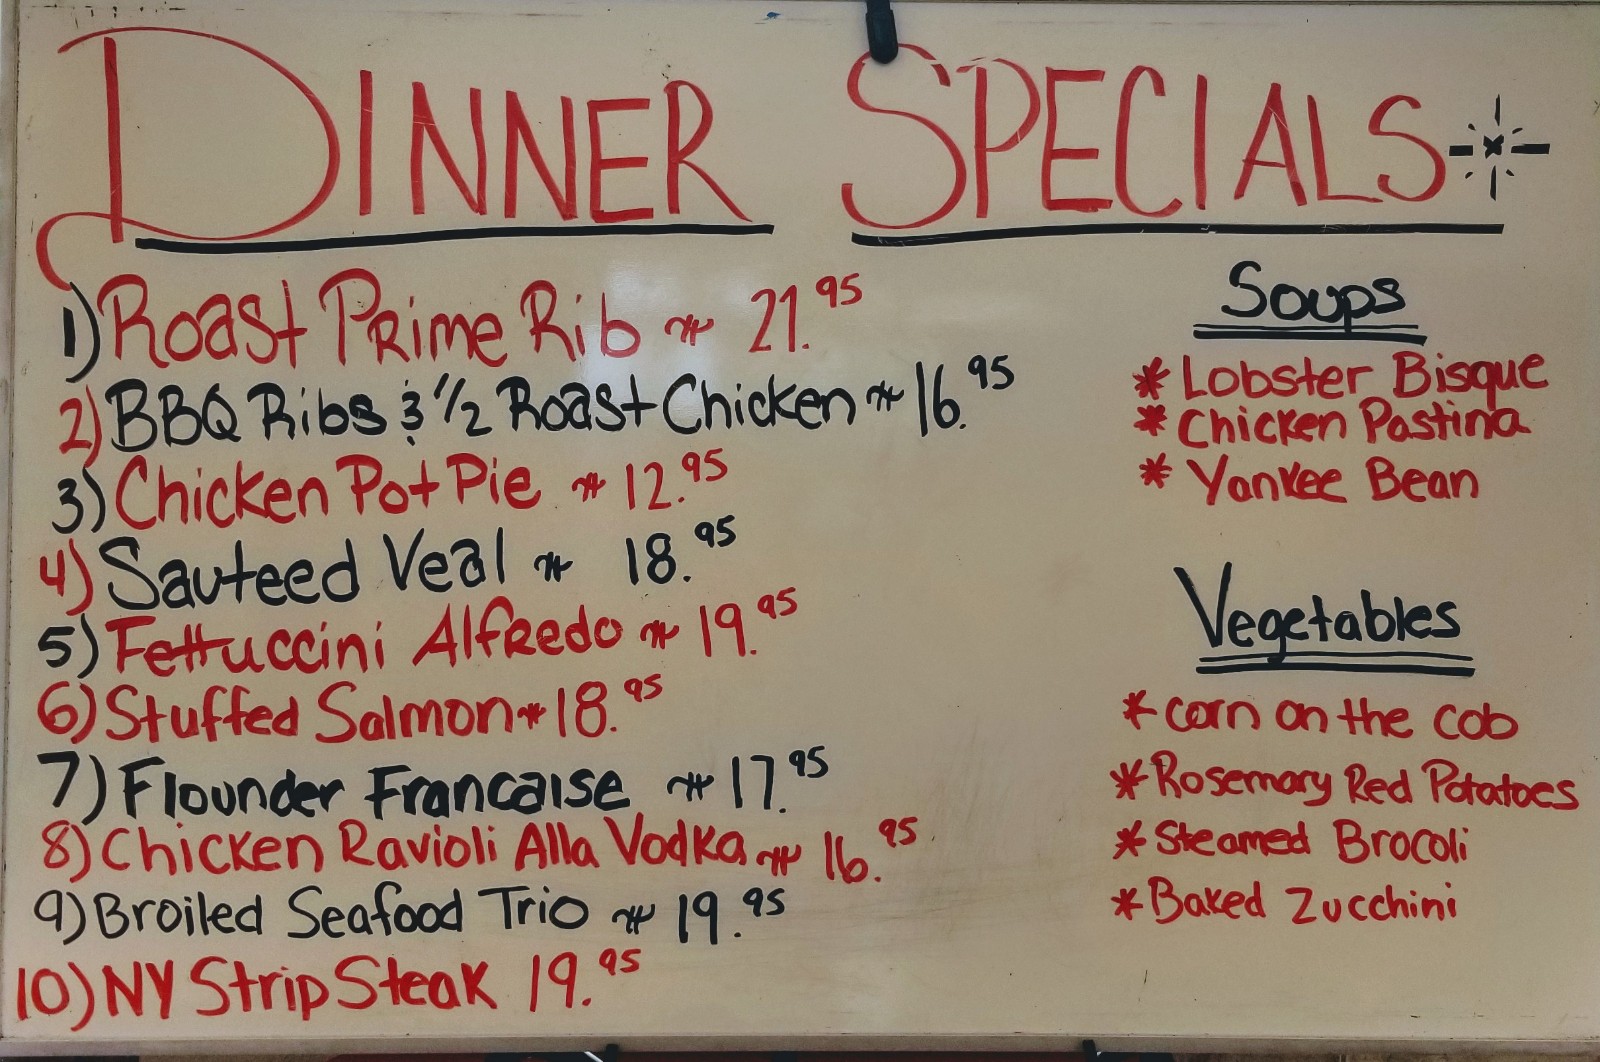 DINNER SPECIALS
1) Roast Prime Rib ~ 21.95
2) BBQ Ribs & 1/2 Roast Chicken ~ 16.95
3) Chicken Pot Pie ~ 12.95
4) Sauteed Veal ~ 18.95
5) Fettuccini Alfredo ~ 19.95
6) Stuffed Salmon ~ 18.95
7) Flounder Francaise ~ 17.95
8) Chicken Ravioli Alla Vodka ~ 16.95
9) Broiled Seafood Trio ~ 19.95
10) NY Strip Steak 19.95
Soups
* Lobster Bisque
* Chicken Pastina
* Yankee Bean
Vegetables
* corn on the cob
* Rosemary Red Potatoes
* Steamed Brocoli
* Baked Zucchini